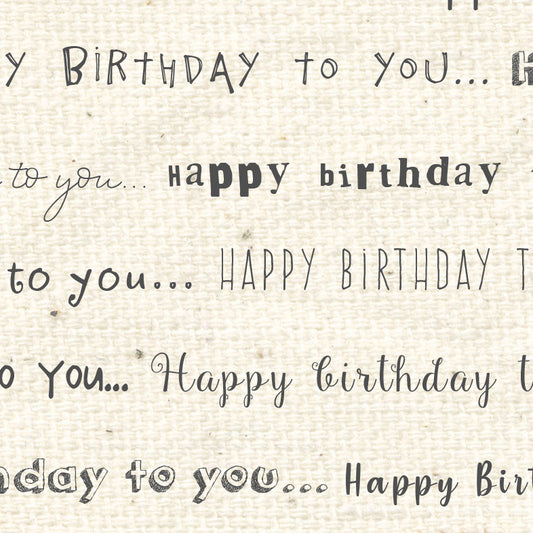 Y BIRTHDAY TO YOU...
to you... Happy birthday
to you... HAPPY BIRTHDAY T
o YOU... Happy birthday t
nday to you... Happy Birt